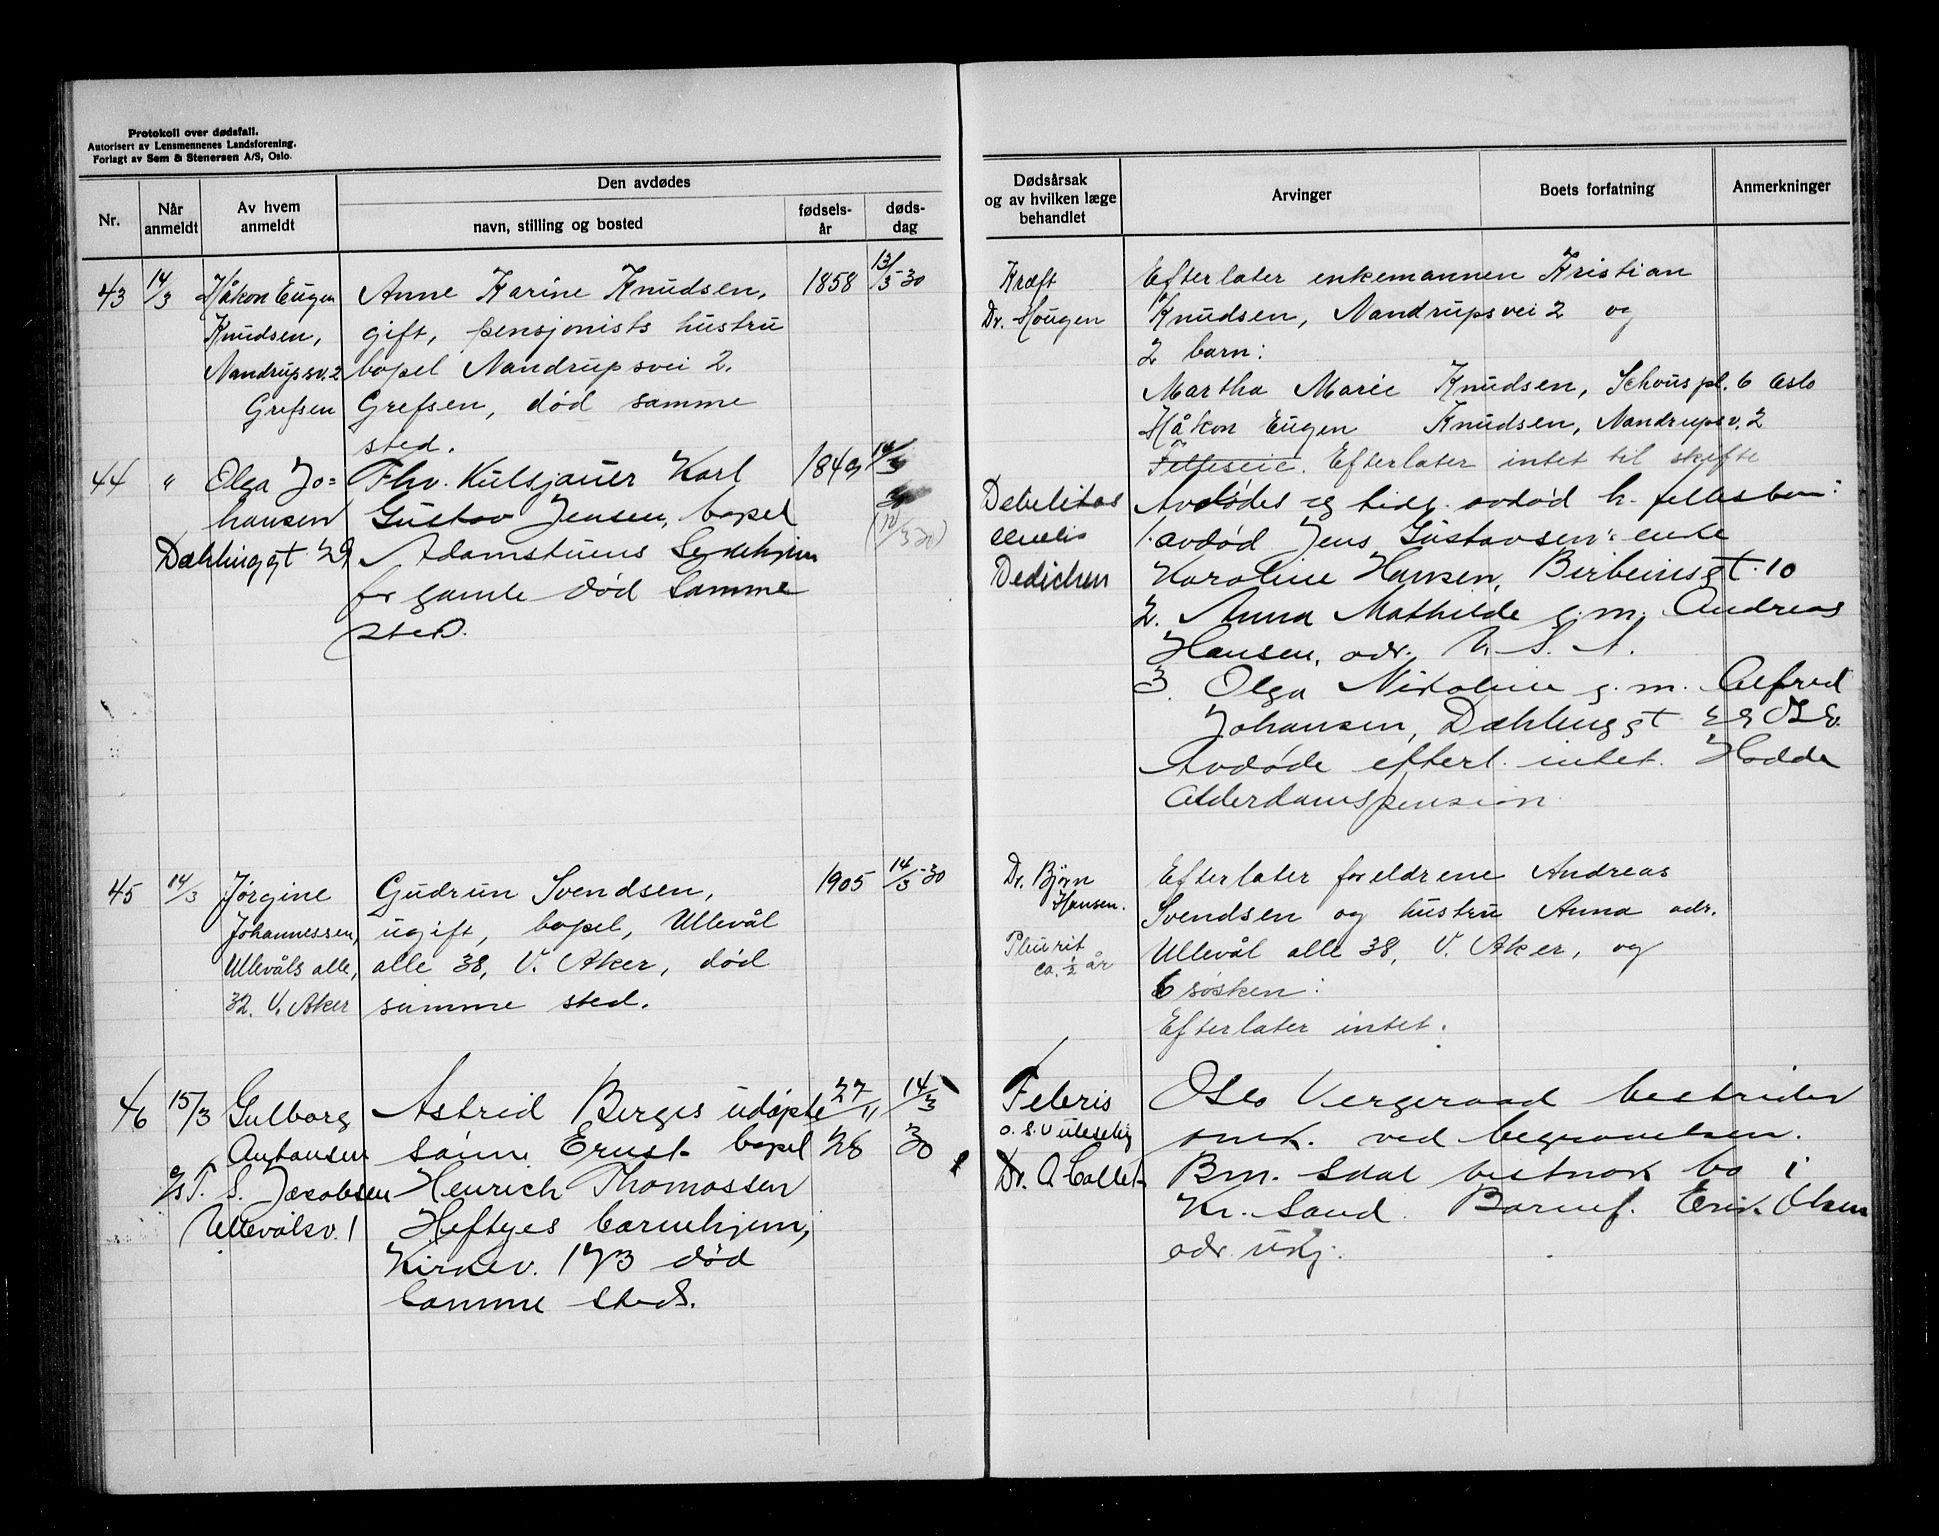 Protokoll over dødsfall.
Autorisert av Lensmennenes Landsforening.
Forlagt av Sem & Stenersen A/S, Oslo.
Nr.
Når anmeldt
Av hvem anmeldt
Den avdødes
navn, stilling og bosted
fødsels-år
døds-dag
Dødsårsak
og av hvilken læge
behandlet
Arvinger
Boets forfatning
Anmerkninger
43
14/3
Håkon Eugen
Knudsen,
Nandrupsv. 2
Grefsen
Anne Karine Knudsen,
gift, pensjonists hustru
bopel Nandrupsvei 2.
Grefsen, død samme
sted.
1858
13/3-30
Kræft
Dr. Hougen
Efterlater enkemannen Kristian
Knudsen, Nandrupsvei 2 og
2 barn:
Martha Marie Knudsen, Schouspl. 6 Oslo
Håkon Eugen Knudsen, Nandrupsv. 2
Felleseie. Efterlater intet til skifte
44
"
Olga Jo=
hansen
Dæhlinggt 29
Fhv. Kulsjauer Karl
Gustav Jensen, bopel
Adamstuens Sykehjem
for gamle død samme
sted.
1849
(12/3 30)
Debilitas
senilis
Dedichen
Avdødes og tidl. avdød h. fellesbarn:
1. avdød Jens Gustavsen's enke
Karoline Hansen, Birbeinsgt. 10
2. Anna Mathilde g. m. Andreas
Hansen, adr. U. S. A.
3. Olga Nikoline g. m. Alfred
Johansen, Dæhlinggt 29 Oslo.
Avdøde efterl. intet. Hadde
Alderdomspension
45
14/3
Jørgine
Johannessen,
Ullevåls alle,
32. V. Aker
Gudrun Svendsen,
ugift, bopel, Ullevål
alle 38, V. Aker, død
samme sted.
1905
14/3-30
Dr. Bjørn
Hansen.
Pleurit
ca. ½ år
Efterlater foreldrene Andreas
Svendsen og hustru Anna adr.
Ullevål alle 38, V. Aker, og
6 søsken:
Efterlater intet.
46
15/3
Gulborg
Anthonsen
T. S. Jacobsen
Ullevålsv. 1
Astrid Berges udøpte
sønn Ernst bopel
Henrich Thomassen
Heftyes barnehjem,
Kirkev. 173 død
samme sted.
27/11
28
14/3
30
Febris
Dr. A Collet
Oslo Vergeraad bestrider
omk. ved begravelsen.
Bm. skal vistnok bo i
Kr. Sand. Barnef. Erik Olsen
adr. ukj.